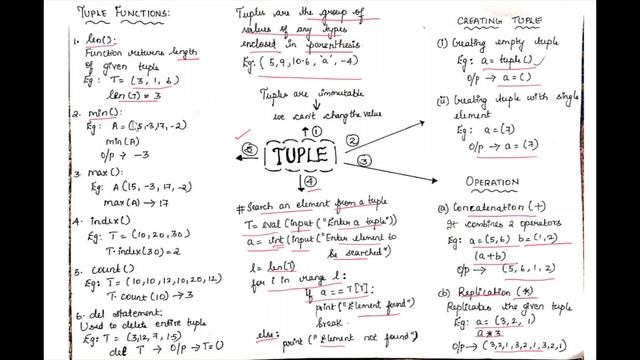 TUPLE FUNCTIONS:
1. len():
Function returns length
of given tuple
Eg: T = (3, 1, 6)
len(T) = 3
2. min():
Eg: A = (15,-3,17,-2)
min(A)
O/p → -3
3 max():
Eg: A(15, -3, 17, -2)
max(A) → 17
4. index()
Eg: T = (10, 20, 30)
T.index(30) = 2
5 count()
Eg: T = (10,10,12,10,20,12)
T.count(10) → 3
6. del statement:
Used to delete entire tuple
Eg: T = (3,12,7,1.5)
del T → O/p → T=()
Tuples are the group of
values of any types
enclosed in parenthesis
Eg: (5, 9, 10.6, 'a', -4)
Tuples are immutable
we can't change the value
①
②
③
④
⑤
TUPLE
# Search an element from a tuple
T = eval (input ("Enter a tuple"))
a = int (input ("Enter element to
be searched")
l = len(T)
for i in range l:
if a == T[T]:
print("Element found")
break
else:
print ("Element not found")
CREATING TUPLE
(i) Creating empty tuple
Eg: a = tuple()
O/p → a = ()
(ii) Creating tuple with single
element
Eg: a = (7)
O/p → a = (7)
OPERATION
(a) Concatenation (+)
It combines 2 operators
Eg: a = (5,6) b = (1,2)
(a+b)
O/p → (5, 6, 1, 2)
(b) Replication (*)
Replicates the given tuple
Eg: a = (3, 2, 1)
a * 3
O/p → (3,2,1,3,2,1,3,2,1)